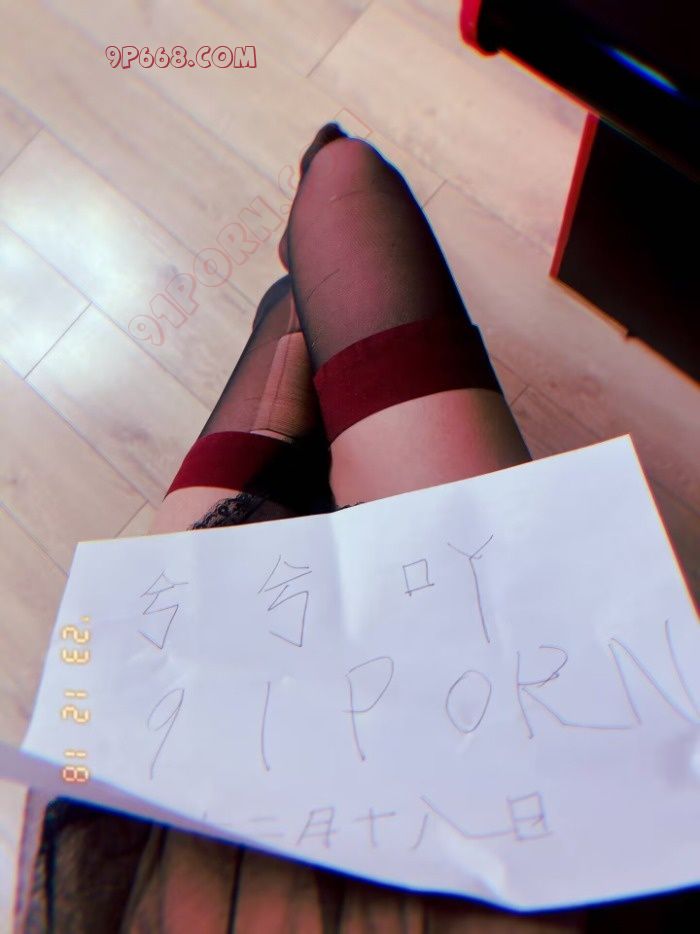 9P668.COM
91PORN.COM
兮兮吖
91PORN
十二月十八日
'23 12 18